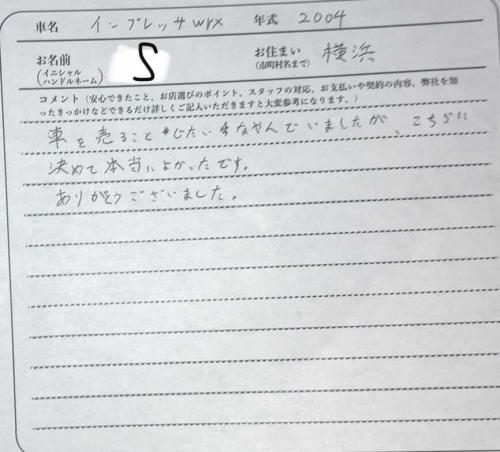 車名 インプレッサwrx 年式 2004
お名前 S お住まい 横浜
(イニシャル (市町村名まで)
ハンドルネーム)
コメント(安心できたこと、お店選びのポイント、スタッフの対応、お支払いや契約の内容、弊社を知
ったきっかけなどできるだけ詳しくご記入いただきますと大変参考になります。)
車を売ること じたい なやんでいましたが、こちらに
決めて本当によかったです。
ありがとうございました。